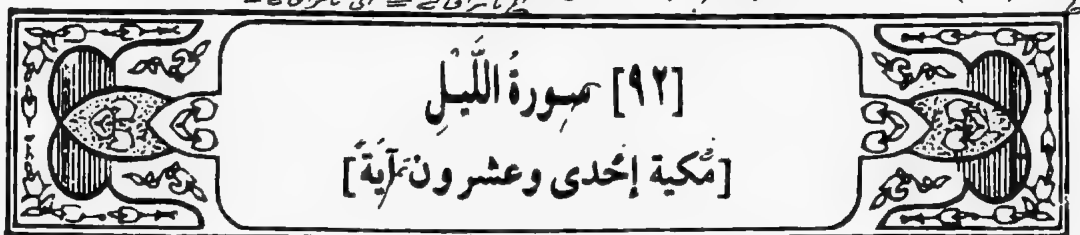 [٩٢] سورةُ اللَّيْلِ
[مَكية إحْدى وعشرون آيَةً]